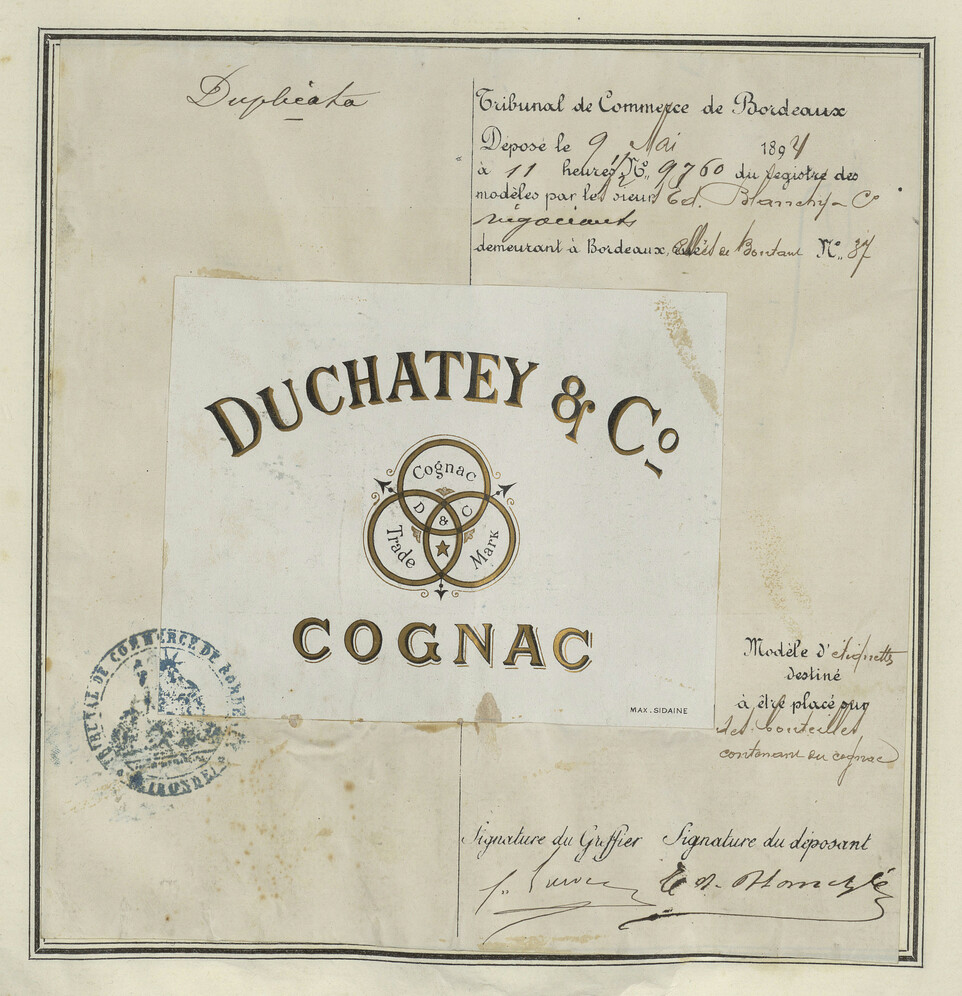 Duplicata
Tribunal de Commerce de Bordeaux
Déposé le 9 Mai 1894
à 11 heures ½ N° 9760 du registre des
modèles par les sieurs Ed. Blanchy & Co
négociants
demeurant à Bordeaux, de N° 37
DUCHATEY & Co
Cognac
D & C
Trade Mark
COGNAC
MAX. SIDAINE
TRIBUNAL DE COMMERCE DE BORDEAUX
GIRONDE
Modèle d'étiquette
destiné
à être placé sur
des bouteilles
contenant du cognac
Signature du Greffier Signature du déposant